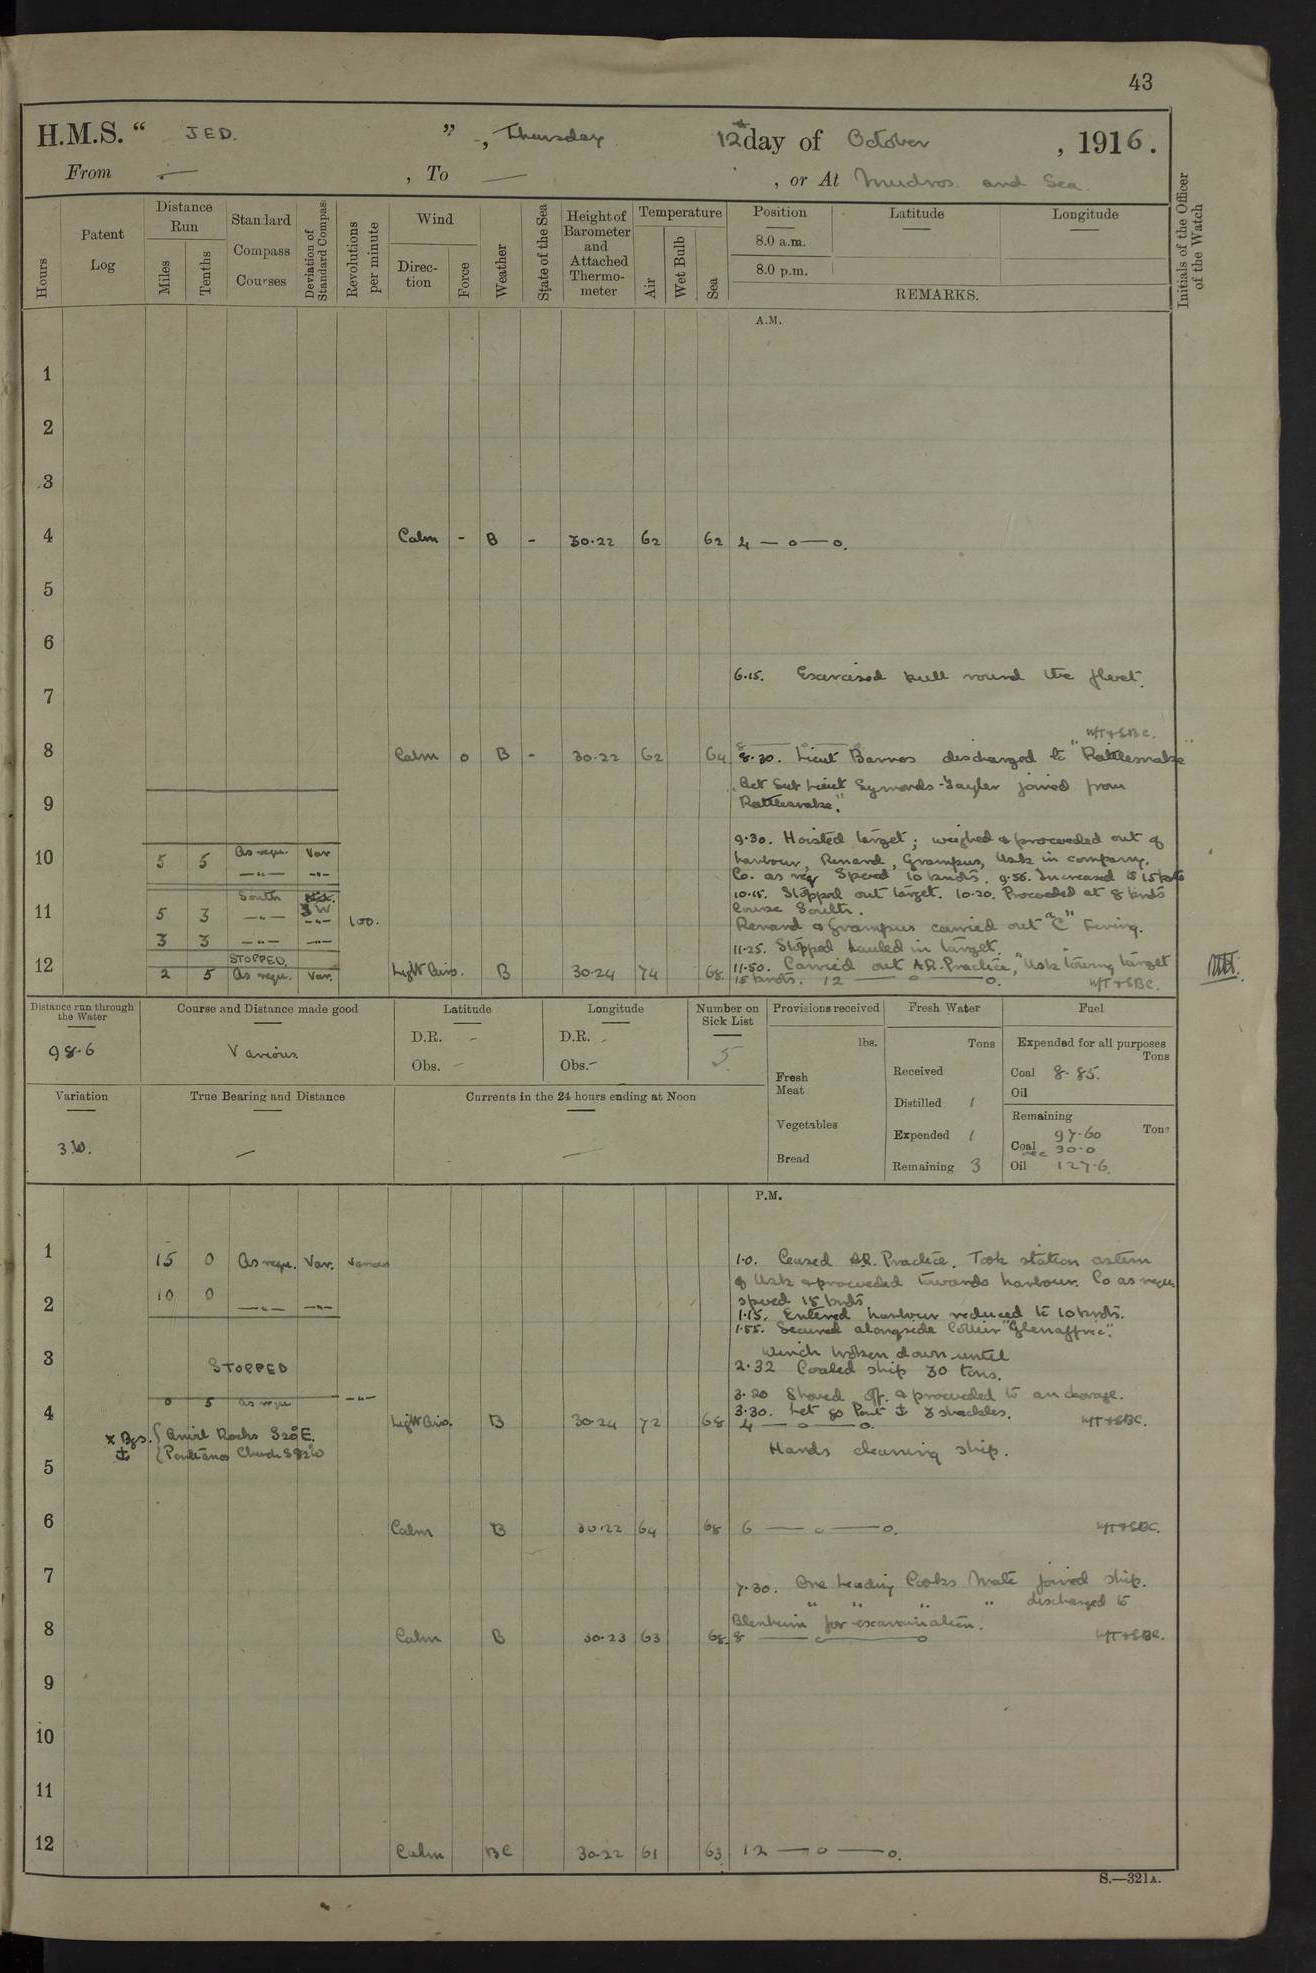 43
H.M.S. " JED. ", Thursday 12th day of October, 1916.
From — , To — , or At Mudros and Sea.
Hours
Patent Log
Distance Run
Miles
Tenths
Standard Compass Courses
Deviation of Standard Compass
Revolutions per minute
Wind
Direction
Force
Weather
State of the Sea
Height of Barometer and Attached Thermometer
Temperature
Air
Wet Bulb
Sea
Position
Latitude
Longitude
8.0 a.m.
8.0 p.m.
REMARKS.
Initials of the Officer of the Watch
A.M.
1
2
3
4 Calm - B - 30.22 62 62 4 — o — o.
5
6
6.15. Exercised pull round the fleet.
7
W/T & S.B.C.
8 Calm o B - 30.22 62 64 8.30. Lieut Barnes discharged to "Rattlesnake"
Act Sub Lieut Symonds-Tayler joined from
9 "Rattlesnake."
9.30. Hoisted target; weighed & proceeded out of
10 5 5 As requ. Var harbour, Renard, Grampus, Usk in company.
—"— —"— Co. as req Speed 10 knots. 9.55. Increased to 15 kts
South 10.15. Stopped out target. 10.20. Proceeded at 8 knots
11 5 3 —"— 3W —"— 100. Course South.
Renard & Grampus carried out "C" Firing.
3 3 —"— —"— 11.25. Stopped hauled in target.
STOPPED
12 2 5 As requ. Var. Light Airs. B 30.24 74 68 11.50. Carried out A.R. Practice, "Usk towing target
15 knots. 12 — o — o. W/T & S.B.C.
Distance run through the Water
98.6
Course and Distance made good
Various
Latitude
D.R. -
Obs. -
Longitude
D.R. -
Obs. -
Number on Sick List
5
Provisions received
lbs.
Fresh Meat
Vegetables
Bread
Fresh Water
Tons
Received
Distilled 1
Expended 1
Remaining 3
Fuel
Expended for all purposes
Tons
Coal 8.85.
Oil
Remaining
Tons
Coal 97.60
rec 30.0
Oil 127.6
Variation
3 W.
True Bearing and Distance
—
Currents in the 24 hours ending at Noon
—
P.M.
1 15 0 As requ. Var. Various 1.0. Ceased A.R. Practice. Took station astern
of Usk & proceeded towards harbour. Co as requ
2 10 0 —"— —"— speed 15 knots
1.15. Entered harbour reduced to 10 knots.
1.55. Secured alongside Collier "Glenaffric".
3 STOPPED Winch broken down until
2.32 Coaled ship 30 tons.
0 5 As requ —"— 3.20 Shoved off & proceeded to anchorage.
3.30. Let go Port ⚓ 3 shackles.
4 Light Airs. B 30.24 72 68 4 — o — o. W/T & S.B.C.
x Bgs. { Anvil Rocks S20°E.
⚓ { Church S82°W
Hands cleaning ship.
5
6 Calm B 30.22 64 68 6 — o — o. W/T & S.B.C.
7 7.30. One Leading Cooks Mate joined ship.
" " " " discharged to
Blenheim for examination.
8 Calm B 30.23 63 68 8 — o — o W/T & S.B.C.
9
10
11
12 Calm BC 30.22 61 63 12 — o — o.
S.—321A.